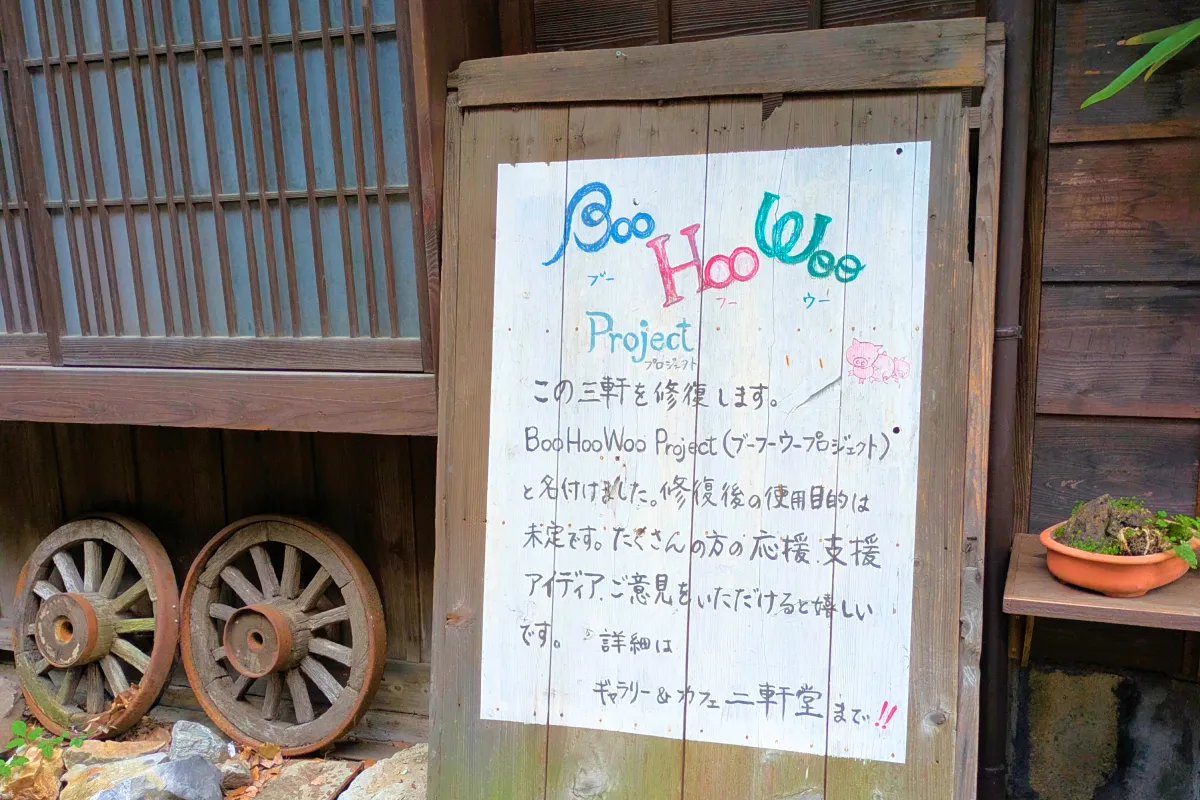 Boo Hoo Woo
ブー フー ウー
Project
プロジェクト
この三軒を修復します。
BooHooWoo Project(ブーフーウープロジェクト)
と名付けました。修復後の使用目的は
未定です。たくさんの方の応援、支援
アイディア、ご意見をいただけると嬉しい
です。 詳細は
ギャラリー&カフェ二軒堂まで!!